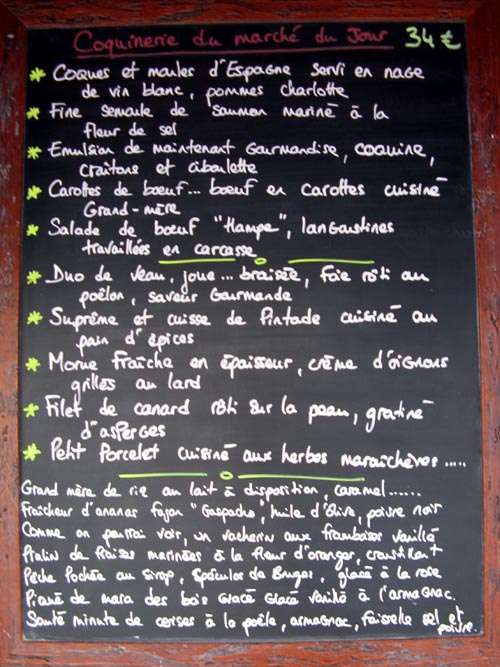 Coquinerie du marché du Jour 34 €
* Coques et moules d'Espagne servi en nage
de vin blanc, pommes charlotte
* Fine semoule de saumon mariné à la
fleur de sel
* Emulsion de maintenant Gourmandise, coquine,
croûtons et ciboulette
* Carottes de boeuf... boeuf en carottes cuisiné
Grand-mère
* Salade de boeuf "Hampe", langoustines
travaillées en carcasse
* Duo de veau, joue... braisée, foie rôti au
poêlon, saveur Gourmande
* Suprême et cuisse de Pintade cuisiné au
pain d'épices
* Morue Fraîche en épaisseur, crème d'oignons
grillés au lard
* Filet de canard rôti sur la peau, gratiné
d'asperges
* Petit Porcelet cuisiné aux herbes maraîchères.....
Grand mère de riz au lait à disposition, caramel......
Fraîcheur d'ananas façon "Gaspacho", huile d'Olive, poivre noir
Comme on pourrai voir, un vacherin aux framboises vanillé
de fraises marinées à la fleur d'oranger, croustillant
Pêche Pochée au sirop, Spéculos de Bruges, glacé à la rose
de mara des bois Glacé Glacé vanillé à l'armagnac.
Sauté minute de cerises à la poêle, armagnac, faisselle sel et
poivre.